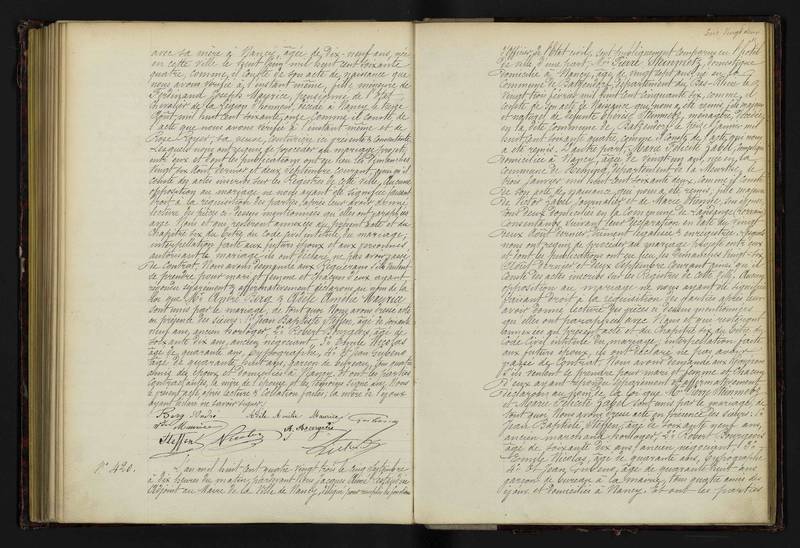 avec sa mère à Nancy, âgée de Dix-neuf ans, née
en cette ville le vingt cinq mai huit cent soixante
quatre, comme il conste de son acte de naissance que
nous avons vérifié à l'instant même, fille mineure de
Ferdinand Joseph Maurice, pensionné de l'Etat
Chevalier de la Légion d'honneur, décédé à Nancy le treize
Août, mil huit cent soixante onze comme il conste de
l'acte que nous avons vérifié à l'instant même et de
Rose Royer, sa veuve, couturière ici présente & consentante
Lesquels nous ont requis de procéder au mariage projeté
entr'eux et dont les publications ont eu lieu les Dimanches
vingt six Août dernier et deux septembre courant ainsi qu'il
conste des actes inscrits sur les Registres de cette ville, Aucune
opposition au mariage ne nous ayant été signifiée faisant
droit à la réquisition des parties, après leur avoir donné
lecture des pièces ci-dessus mentionnées qu'elles ont paraphées
avec Nous et qui resteront annexées au présent acte et du
chapitre six du Code Civil intitulé du mariage,
interpellation faite aux futurs époux et aux personnes
autorisant le mariage ils ont déclaré ne pas avoir passé
de contrat. Nous avons demandé aux Requérans s'ils veulent
se prendre pour mari et femme et chacun d'eux ayant
répondu séparément & affirmativement déclarons au nom de la
loi que Mr André Berg & Adèle Amélie Maurice
sont unis par le mariage, de tout quoi Nous avons dressé acte
en présence des sieurs 1° Jean Baptiste Steffen, âgé de soixante
neuf ans, ancien horloger, 2° Robert Bourgeois âgé de
soixante dix ans, ancien négociant, 3° Emile Nicolas
âgé de quarante ans, Lithographe, 4° et Jean Guibout
âgé de quarante huit ans, garçon de bureau, tous quatre
amis des époux et domiciliés à Nancy. Et ont les parties
contractantes, la mère de l'épouse et les témoins signé avec Nous
le présent acte, après lecture & collation faites, la mère de l'époux
ayant déclaré ne savoir signer.
Berg André Adèle Amélie Maurice
Ve Maurice A. Bourgeois
Steffen Nicolas
N° 426. L'an mil huit cent quatre vingt trois le cinq septembre
à Dix heures du matin, pardevant Nous Jacques
Adjoint au Maire de la Ville de Nancy, délégué pour remplir les fonctions
d'Officier de l'Etat civil, sont publiquement comparus en l'hôtel
de ville, d'une part, Mr Pierre Hemmertz, domestique
domicilié à Nancy, âgé de vingt sept ans, né en la
Commune de Département du Bas-Rhin le
vingt février mil huit cent cinquante six, comme il
conste de son acte de Naissance que nous a été remis, fils majeur
et naturel de défunte Thérèse Hemmertz, ménagère, décédée
en la dite Commune de le seize Janvier mil
huit cent soixante quatre, comme il conste de l'acte que nous
a été remis. D'autre part, Marie Félicité Zabel,
domiciliée à Nancy, âgée de vingt un ans, née en la
commune de département de la Meurthe, le
trois Janvier mil huit cent soixante deux, comme il conste
de son acte de naissance que nous a été remis, fille majeure
de Victor Zabel journalier et de Marie son épouse,
tous deux domiciliés en la Commune de
consentants suivant leur déclaration en date du vingt
deux Août dernier, dûment légalisée & enregistrée. Lesquels
nous ont requis de procéder au mariage projeté entr'eux
et dont les publications ont eu lieu les Dimanches vingt-six
Août dernier et deux septembre courant ainsi qu'il
conste des actes inscrits sur les Registres de cette ville, Aucune
opposition au mariage ne nous ayant été signifiée
faisant droit à la réquisition des parties après leur
avoir donné lecture des pièces ci-dessus mentionnées
qu'elles ont paraphées avec Nous et qui resteront
annexées au présent acte et du Chapitre six du
Code Civil intitulé du mariage, interpellation faite
aux futurs époux, ils ont déclaré ne pas avoir
passé de Contrat. Nous avons demandé aux Requérans
s'ils veulent se prendre pour mari et femme et chacun
d'eux ayant répondu séparément et affirmativement
déclarons au nom de la loi que Mr Pierre Hemmertz
et Marie Félicité Zabel sont unis par le mariage, de
tout quoi Nous avons dressé acte en présence des sieurs 1°
Jean Baptiste Steffen, âgé de soixante neuf ans,
ancien marchand horloger, 2° Robert Bourgeois
âgé de soixante dix ans, ancien négociant, 3°
Emile Nicolas, âgé de quarante ans, Lithographe
4° et Jean Guibout, âgé de quarante huit ans
garçon de bureau à la mairie, tous quatre amis des
époux et domiciliés à Nancy. Et ont les parties